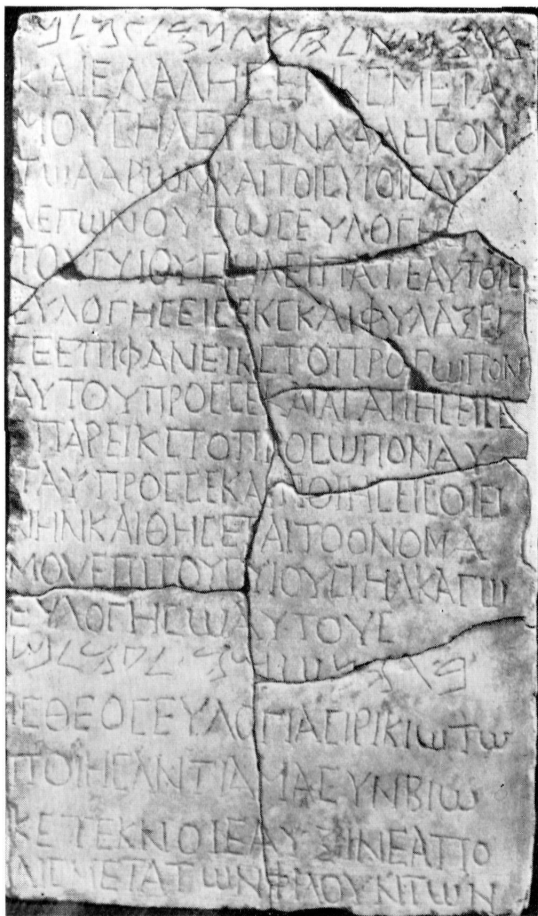 ࠁࠓࠅࠊ ࠀࠋࠄࠉࠍࠅ ࠋࠏࠅࠋࠌ
ΚΑΙΕΛΑΛΗϹΕΝΚϹΜΕΤΑ
ΜΟΥϹΗΛΕΓΩΝΛΑΛΗϹΟΝ
ΤΩΑΑΡΩΝΚΑΙΤΟΙϹΥΙΟΙϹΑΥΤ
ΛΕΓΩΝΟΥΤΩϹΕΥΛΟΓΗϹ
ΤΟΥϹΥΙΟΥϹΙΗΛΕΙΠΑΤΕΑΥΤΟΙϹ
ΕΥΛΟΓΗϹΕΙϹΕΚϹΚΑΙΦΥΛΑΞΕΙ
ϹΕΕΠΙΦΑΝΕΙΚϹΤΟΠΡΟϹΩΠΟΝ
ΑΥΤΟΥΠΡΟϹϹΕΚΑΙΑΓΑΠΗϹΕΙϹΕ
ΕΠΑΡΕΙΚϹΤΟΠΡΟϹΩΠΟΝΑΥ
ΤΑΥΠΡΟϹϹΕΚΑΙΠΟΙΗϹΕΙϹΟΙΕΙ
ΝΗΝΚΑΙΘΗϹΕΤΑΙΤΟΟΝΟΜΑ
ΜΟΥΕΠΙΤΟΥϹΥΙΟΥϹΙΗΛΚΑΓΩ
ΕΥΛΟΓΗϹΩΑΥΤΟΥϹ
ࠁࠓࠅࠊ ࠔࠌࠅ ࠋࠏࠅࠋࠌ
ΙϹΘΕΟϹΕΥΛΟΓΙΑϹΙΡΙΚΙΩΤΩ
ΠΟΙΗϹΑΝΤΙΑΜΑϹΥΝΒΙΩ
ΚΕΤΕΚΝΟΙϹΑΥΞΙΝΕΑΠΟ
ΛΙϹΜΕΤΑΤΩΝΦΙΛΟΥΝΤΩΝ